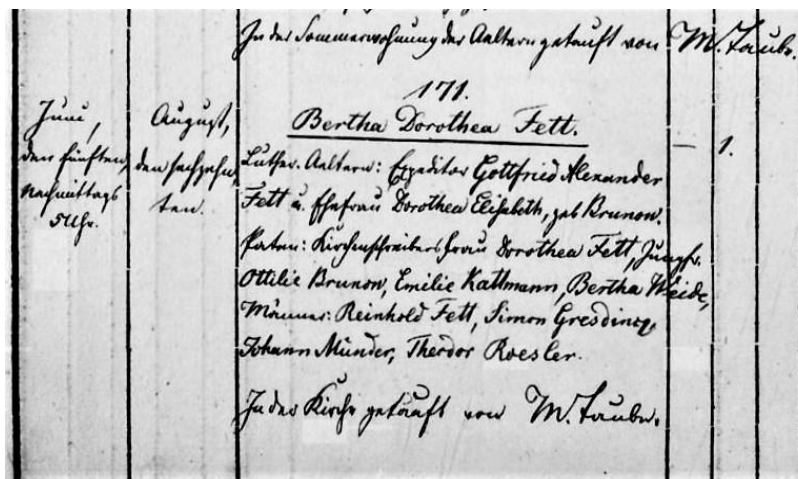 In der Sommerwohnung der Aeltern getauft von M. Taube.
171.
Juni,
den fünften,
nachmittags
5 Uhr.
August,
den sechzehn
ten.
Bertha Dorothea Fett.
— 1.
Luther. Aeltern: Expeditor Gottfried Alexander
Fett u. Ehefrau Dorothea Elisabeth, geb Brunow.
Paten: Kirchenschreibersfrau Dorothea Fett, Jungfr.
Ottilie Brunow, Emilie Kattmann, Bertha Weide,
Männer: Reinhold Fett, Simon Gresding,
Johann Münder, Theodor Roesler.
In der Kirche getauft von M. Taube.